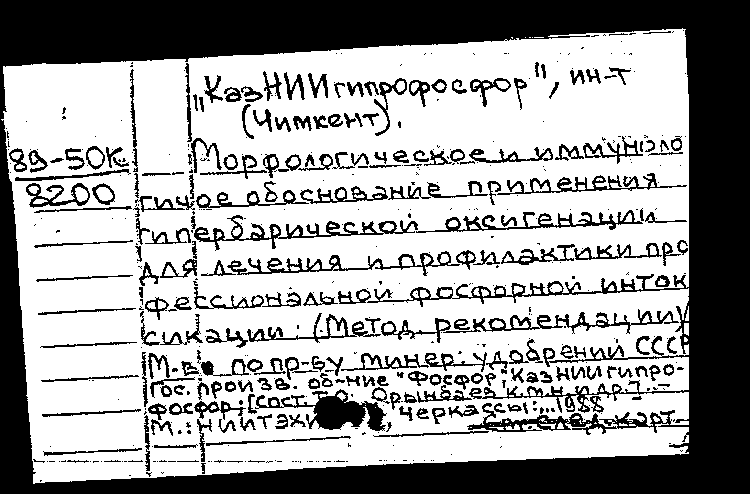 „КазНИИгипрофосфор", ин-т
(Чимкент).
89-50К
8200
Морфологическое и иммуноло
гичое обоснование применения
гипербарической оксигенации
для лечения и профилактики про
фессиональной фосфорной инток
сикации: (Метод. рекомендации)/
М-во по пр-ву минер. удобрений СССР
Гос. произв. об-ние "Фосфор", КазНИИгипро-
фосфор; [Сост. Т.О. Орынбаев к.м.н. и др.]. -
М.: НИИТЭХИ, Черкассы:...,1988
См. след. карт.